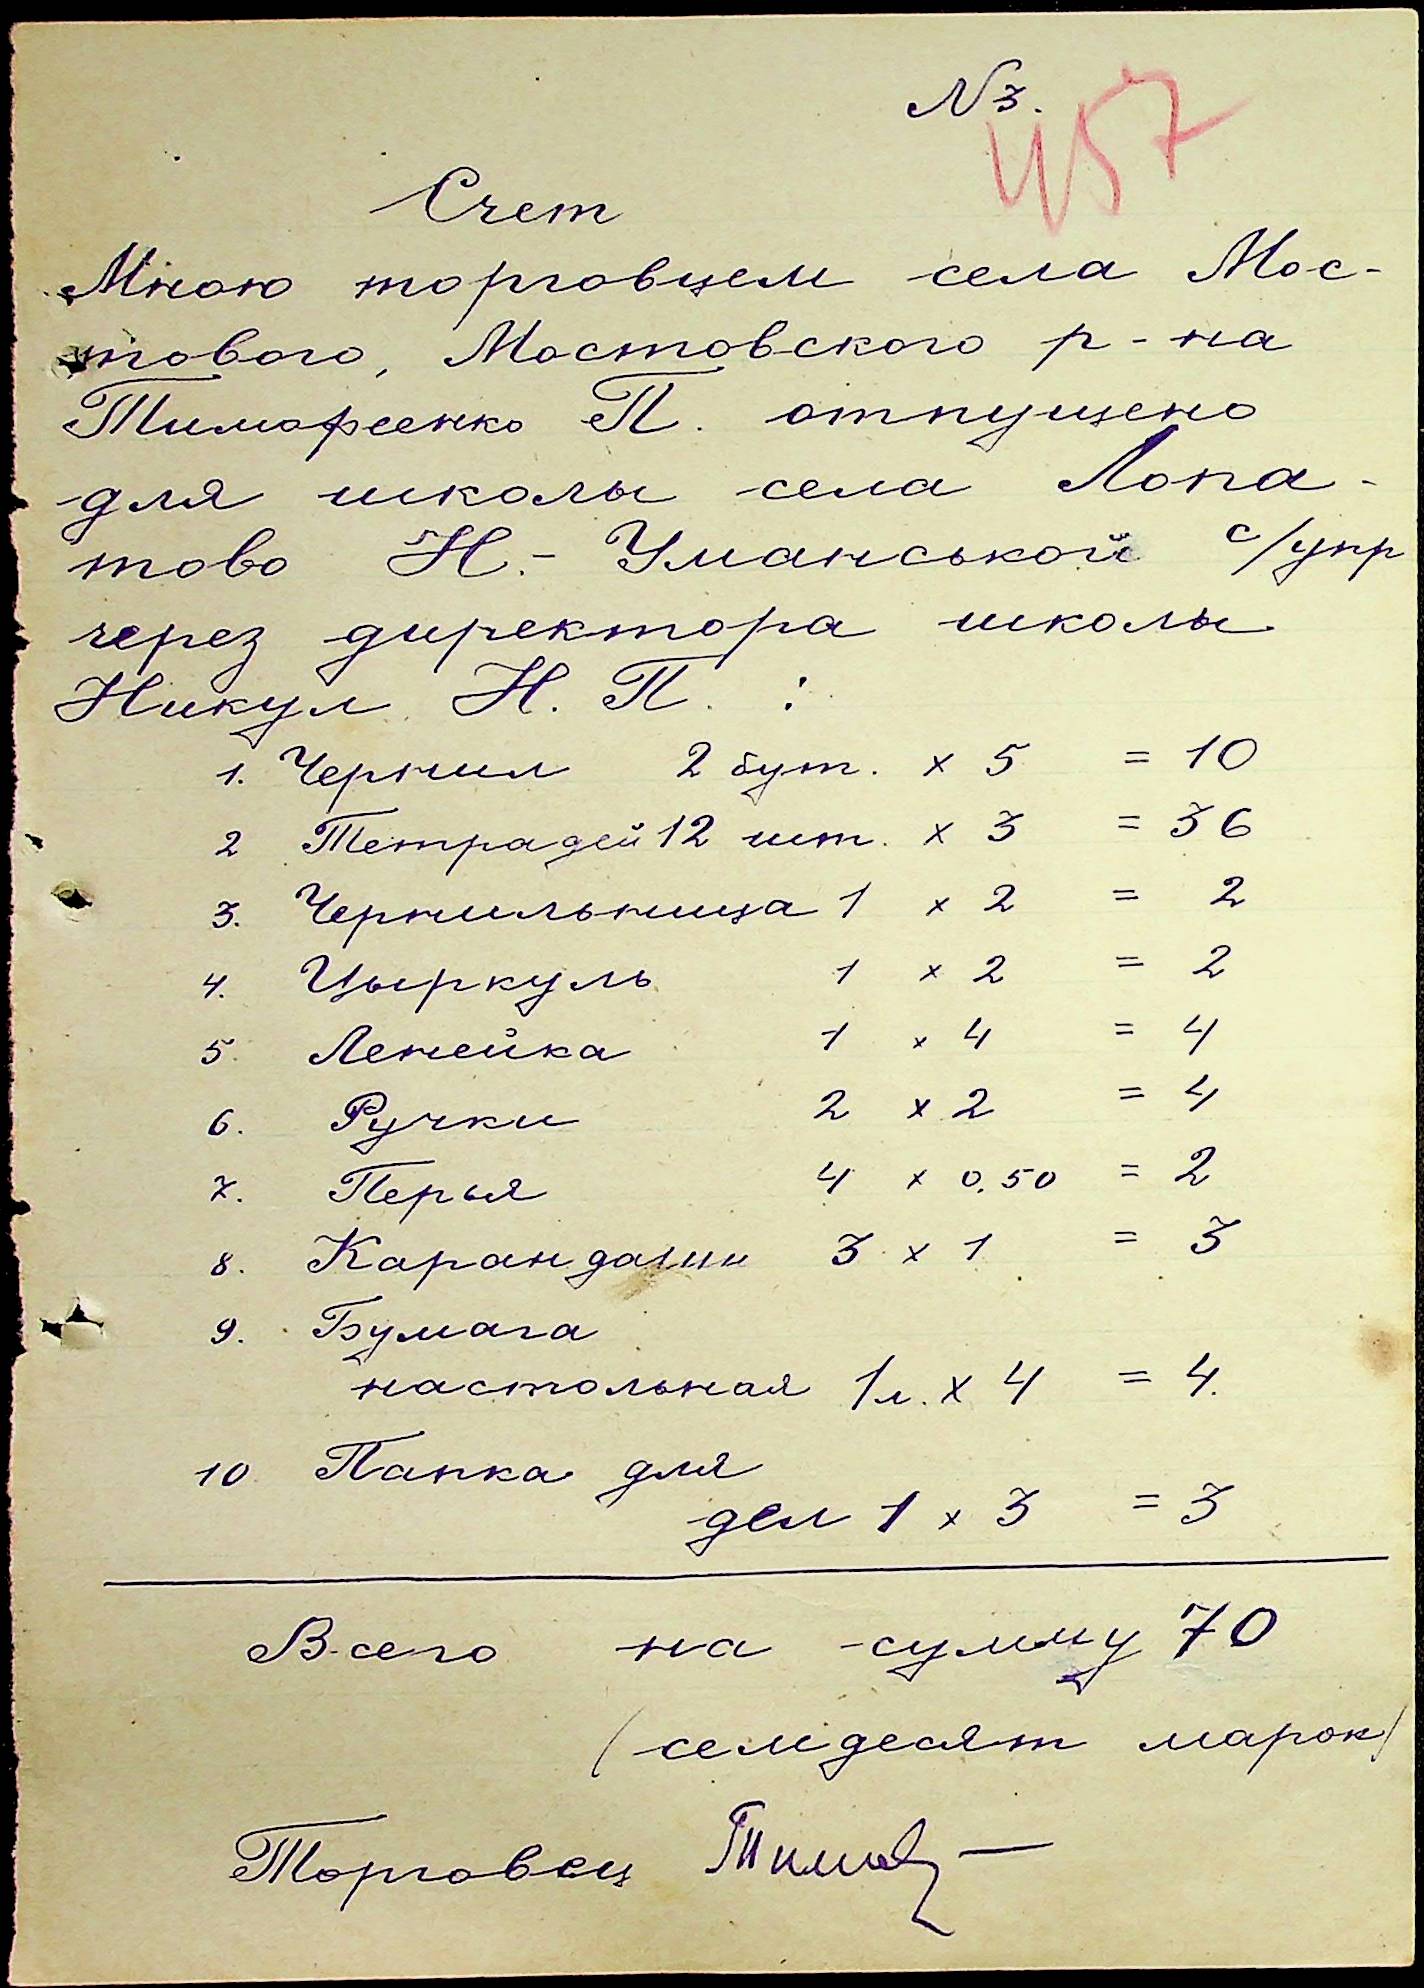 N 3.
457
Счет
Мною торговцем села Мос-
тового, Мостовского р-на
Тимофеенко П. отпущено
для школы села Лопа-
тово Н.-Уманськой с/упр
через директора школы
Никул Н. П. :
1. Чернил 2 бут. x 5 = 10
2 Тетрадей 12 шт. x 3 = 36
3. Чернильница 1 x 2 = 2
4. Цыркуль 1 x 2 = 2
5. Ленейка 1 x 4 = 4
6. Ручки 2 x 2 = 4
7. Перья 4 x 0.50 = 2
8. Карандаши 3 x 1 = 3
9. Бумага
настольная 1 л. x 4 = 4.
10 Папка для
дел 1 x 3 = 3
Всего на сумму 70
(семдесят марок)
Торговец